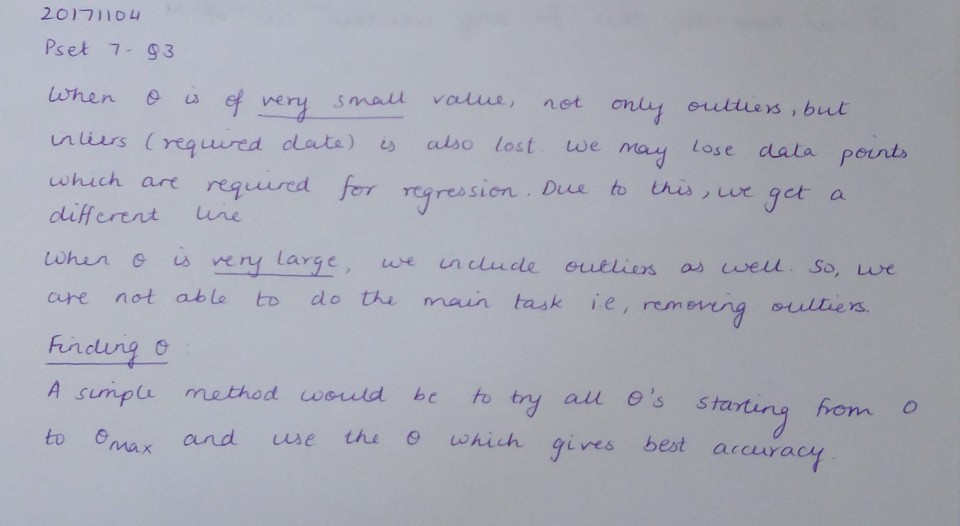 20171104
Pset 7- Q3
When θ is of very small value, not only outliers, but
inliers (required data) is also lost. We may lose data points
which are required for regression. Due to this, we get a
different line.
When θ is very large, we include outliers as well. So, we
are not able to do the main task i.e, removing outliers.
Finding θ :
A simple method would be to try all θ's starting from 0
to θmax and use the θ which gives best accuracy.